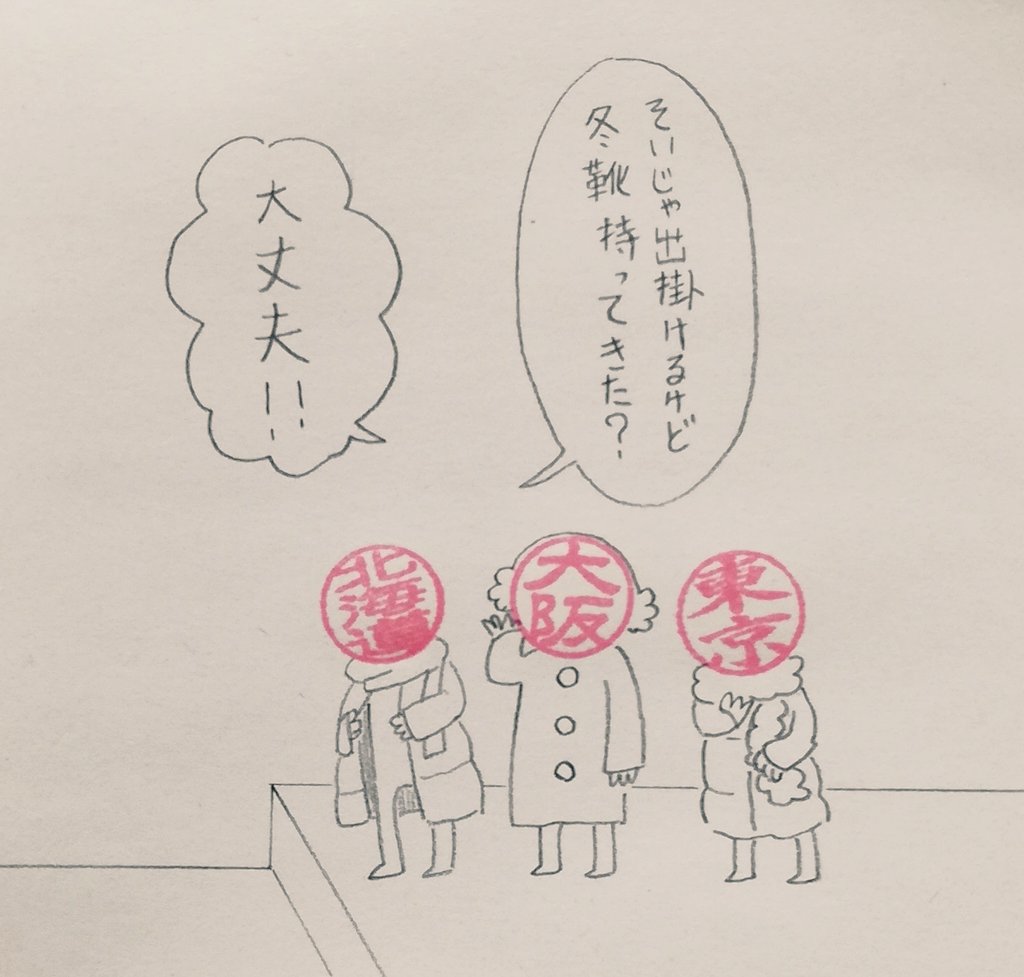 そいじゃ出掛けるけど
冬靴持ってきた?
大丈夫!!
北海道
大阪
東京